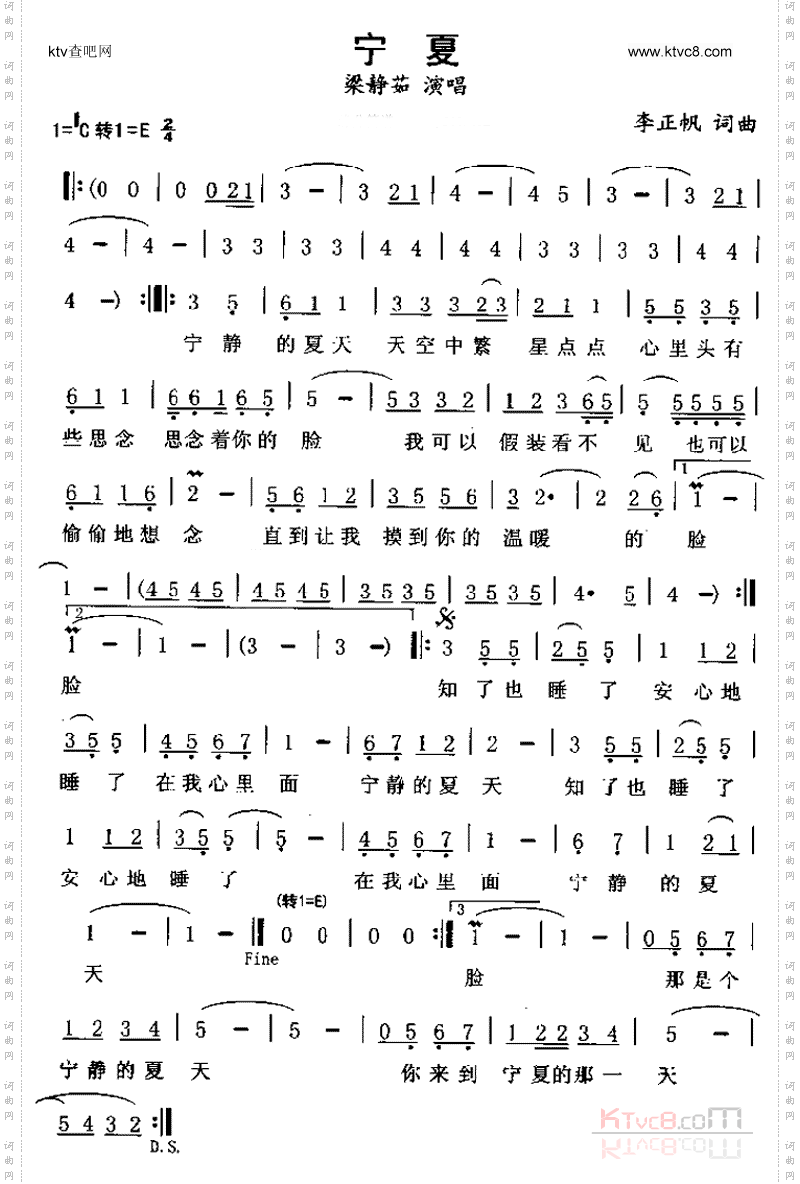 ktv查吧网
宁 夏
www.ktvc8.com
梁静茹 演唱
1=♯C 转1=E 2/4
李正帆 词曲
‖:(0 0 | 0 0 2 1 | 3 - | 3 2 1 | 4 - | 4 5 | 3 - | 3 2 1 |
4 - | 4 - | 3 3 | 3 3 | 4 4 | 4 4 | 3 3 | 3 3 | 4 4 |
4 -) :‖: 3 5 | 6 1 1 | 3 3 3 2 3 | 2 1 1 | 5 5 3 5 |
宁 静 的夏天 天空中繁 星点点 心里头有
6 1 1 | 6 6 1 6 5 | 5 - | 5 3 3 2 | 1 2 3 6 5 | 5 5 5 5 5 |
些思念 思念着你的 脸 我可以 假装看不 见 也可以
6 1 1 6 | 2 - | 5 6 1 2 | 3 5 5 6 | 3 2• | 2 2 6 | 1 - |
1.
偷偷地想 念 直到让我 摸到你的 温暖 的 脸
1 - | (4 5 4 5 | 4 5 4 5 | 3 5 3 5 | 3 5 3 5 | 4• 5 | 4 -) :‖
2.
1 - | 1 - | (3 - | 3 -) ‖: 3 5 5 | 2 5 5 | 1 1 2 |
脸 知 了也 睡 了 安 心地
3 5 5 | 4 5 6 7 | 1 - | 6 7 1 2 | 2 - | 3 5 5 | 2 5 5 |
睡 了 在我心里 面 宁静的夏 天 知 了也 睡 了
1 1 2 | 3 5 5 | 5 - | 4 5 6 7 | 1 - | 6 7 | 1 2 1 |
安 心地 睡 了 在我心里 面 宁 静 的 夏
(转1=E)
3.
1 - | 1 - ‖ 0 0 | 0 0 :‖ 1 - | 1 - | 0 5 6 7 |
Fine
天 脸 那是个
1 2 3 4 | 5 - | 5 - | 0 5 6 7 | 1 2 2 3 4 | 5 - |
宁静的夏 天 你来到 宁夏的那一 天
5 4 3 2 :‖
D.S.
KTvc8.com
词曲网